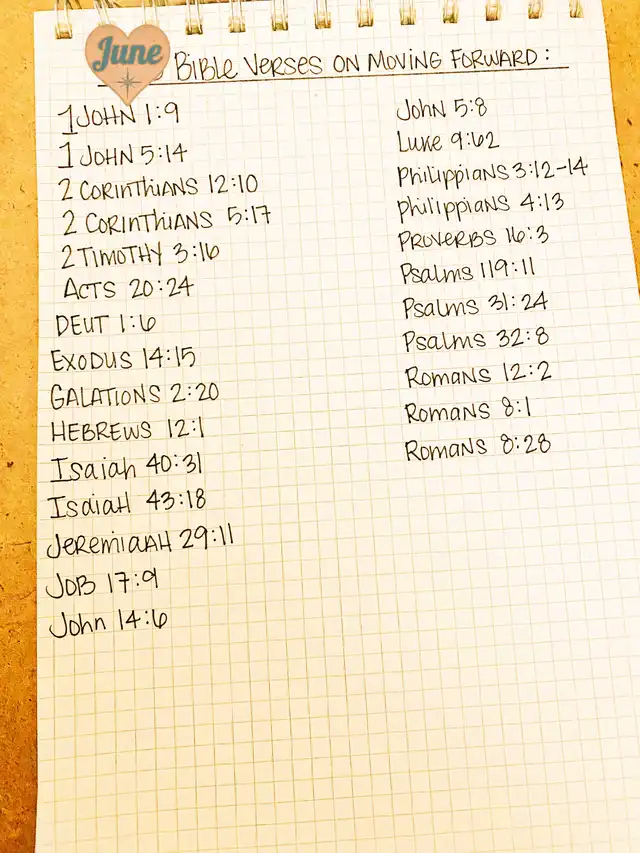 June
BIBLE VERSES ON MOVING FORWARD:
1 JOHN 1:9
1 JOHN 5:14
2 CORINTHIANS 12:10
2 CORINTHIANS 5:17
2 TIMOTHY 3:16
ACTS 20:24
DEUT 1:6
EXODUS 14:15
GALATIONS 2:20
HEBREWS 12:1
Isaiah 40:31
IsaiaH 43:18
JEREMIAAH 29:11
JOB 17:9
John 14:6
JOHN 5:8
LUKE 9:62
PHILIPPIANS 3:12-14
PHILIPPIANS 4:13
PROVERBS 16:3
Psalms 119:11
Psalms 31:24
Psalms 32:8
ROMANS 12:2
ROMANS 8:1
ROMANS 8:28